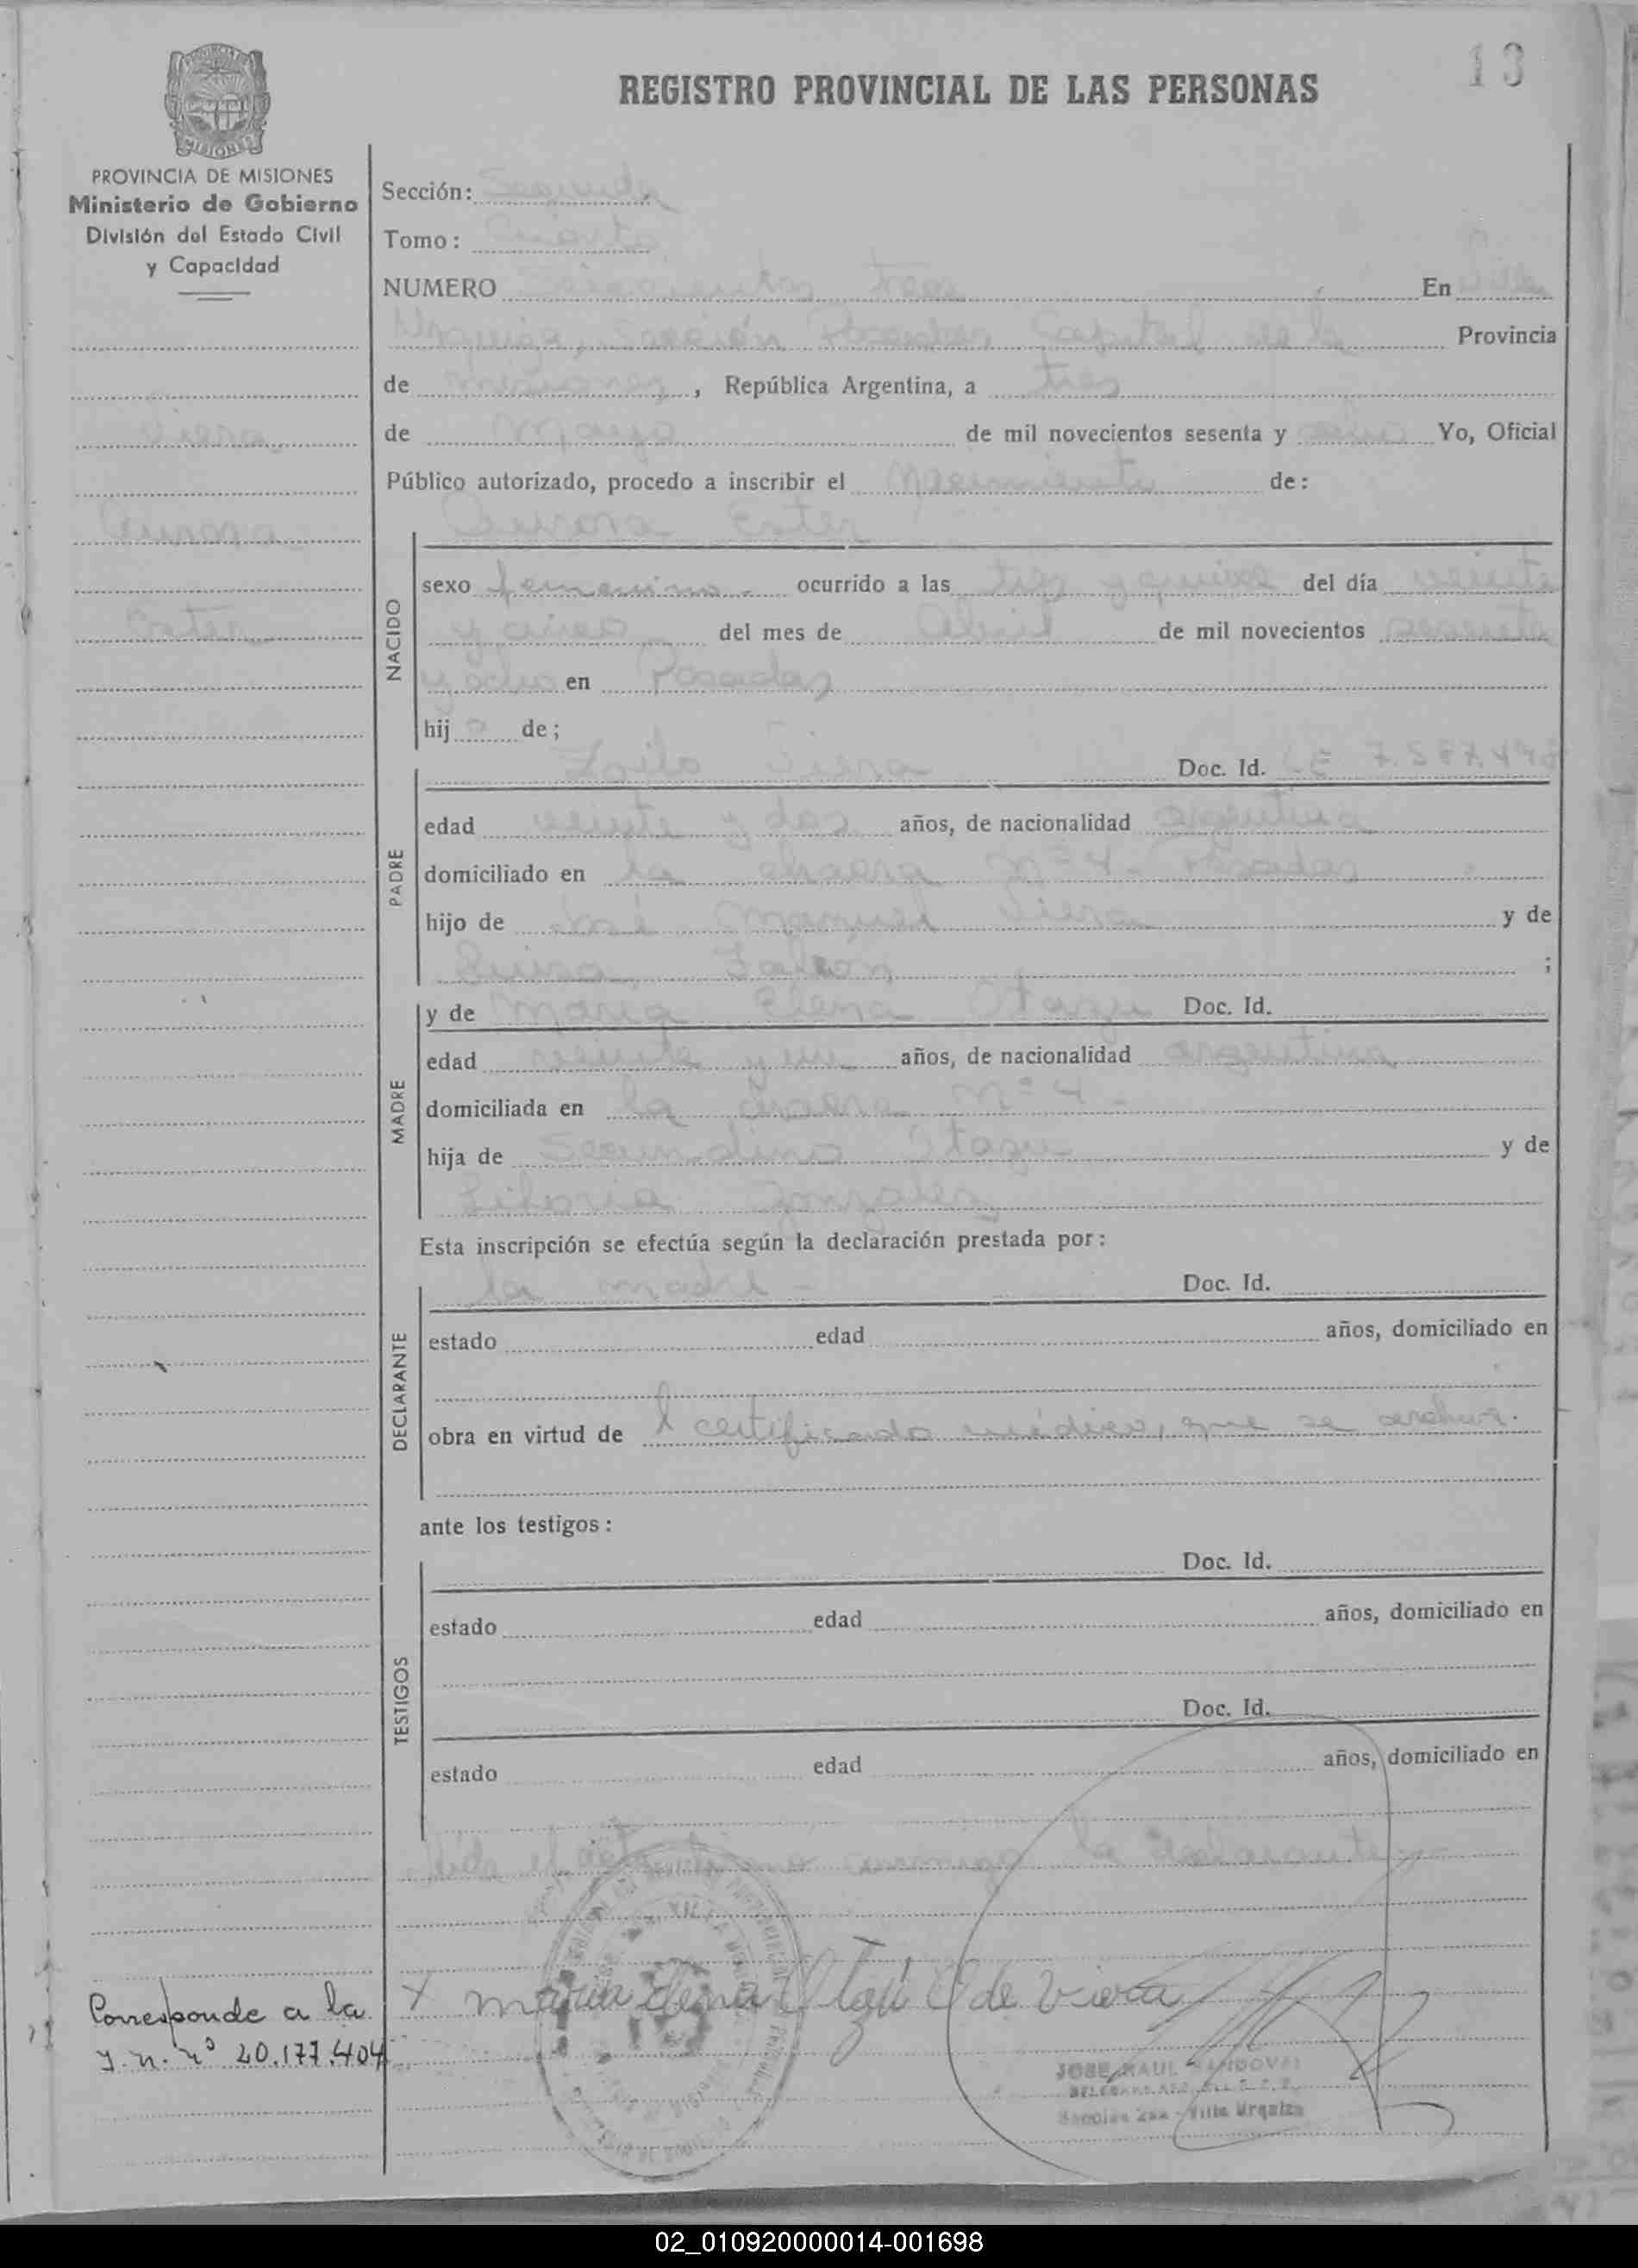 13
REGISTRO PROVINCIAL DE LAS PERSONAS
PROVINCIA DE MISIONES
Ministerio de Gobierno
División del Estado Civil
y Capacidad
Viera
Aurora
Ester
Sección: Segunda
Tomo: Cuarto
NUMERO Seiscientos tres En Villa
Urquiza, Sección Posadas Capital de la Provincia
de Misiones, República Argentina, a tres
de Mayo de mil novecientos sesenta y ocho Yo, Oficial
Público autorizado, procedo a inscribir el Nacimiento de:
Aurora Ester
NACIDO
sexo femenino - ocurrido a las tres y quince del día veinte
y cinco del mes de Abril de mil novecientos sesenta
y ocho en Posadas
hij a de;
PADRE
Viera Doc. Id. LE
edad veinte y dos años, de nacionalidad argentina
domiciliado en la chacra Nº 4 - Posadas
hijo de José Manuel Viera y de
;
MADRE
y de María Elena Otazu Doc. Id.
edad veinte y un años, de nacionalidad argentina
domiciliada en la chacra Nº 4 -
hija de Secundino Otazu y de
Liboria Gonzalez
Esta inscripción se efectúa según la declaración prestada por:
DECLARANTE
la madre - Doc. Id.
estado edad años, domiciliado en
obra en virtud de l certificado médico, que se archiva.
ante los testigos:
TESTIGOS
Doc. Id.
estado edad años, domiciliado en
Doc. Id.
estado edad años, domiciliado en
Leída el acta, la firma conmigo la declarante
x maria Elena Otazú de Viera
Corresponde a la
I.N. Nº 20.177.404
JOSE RAUL SANDOVAL
Villa Urquiza
02_010920000014-001698